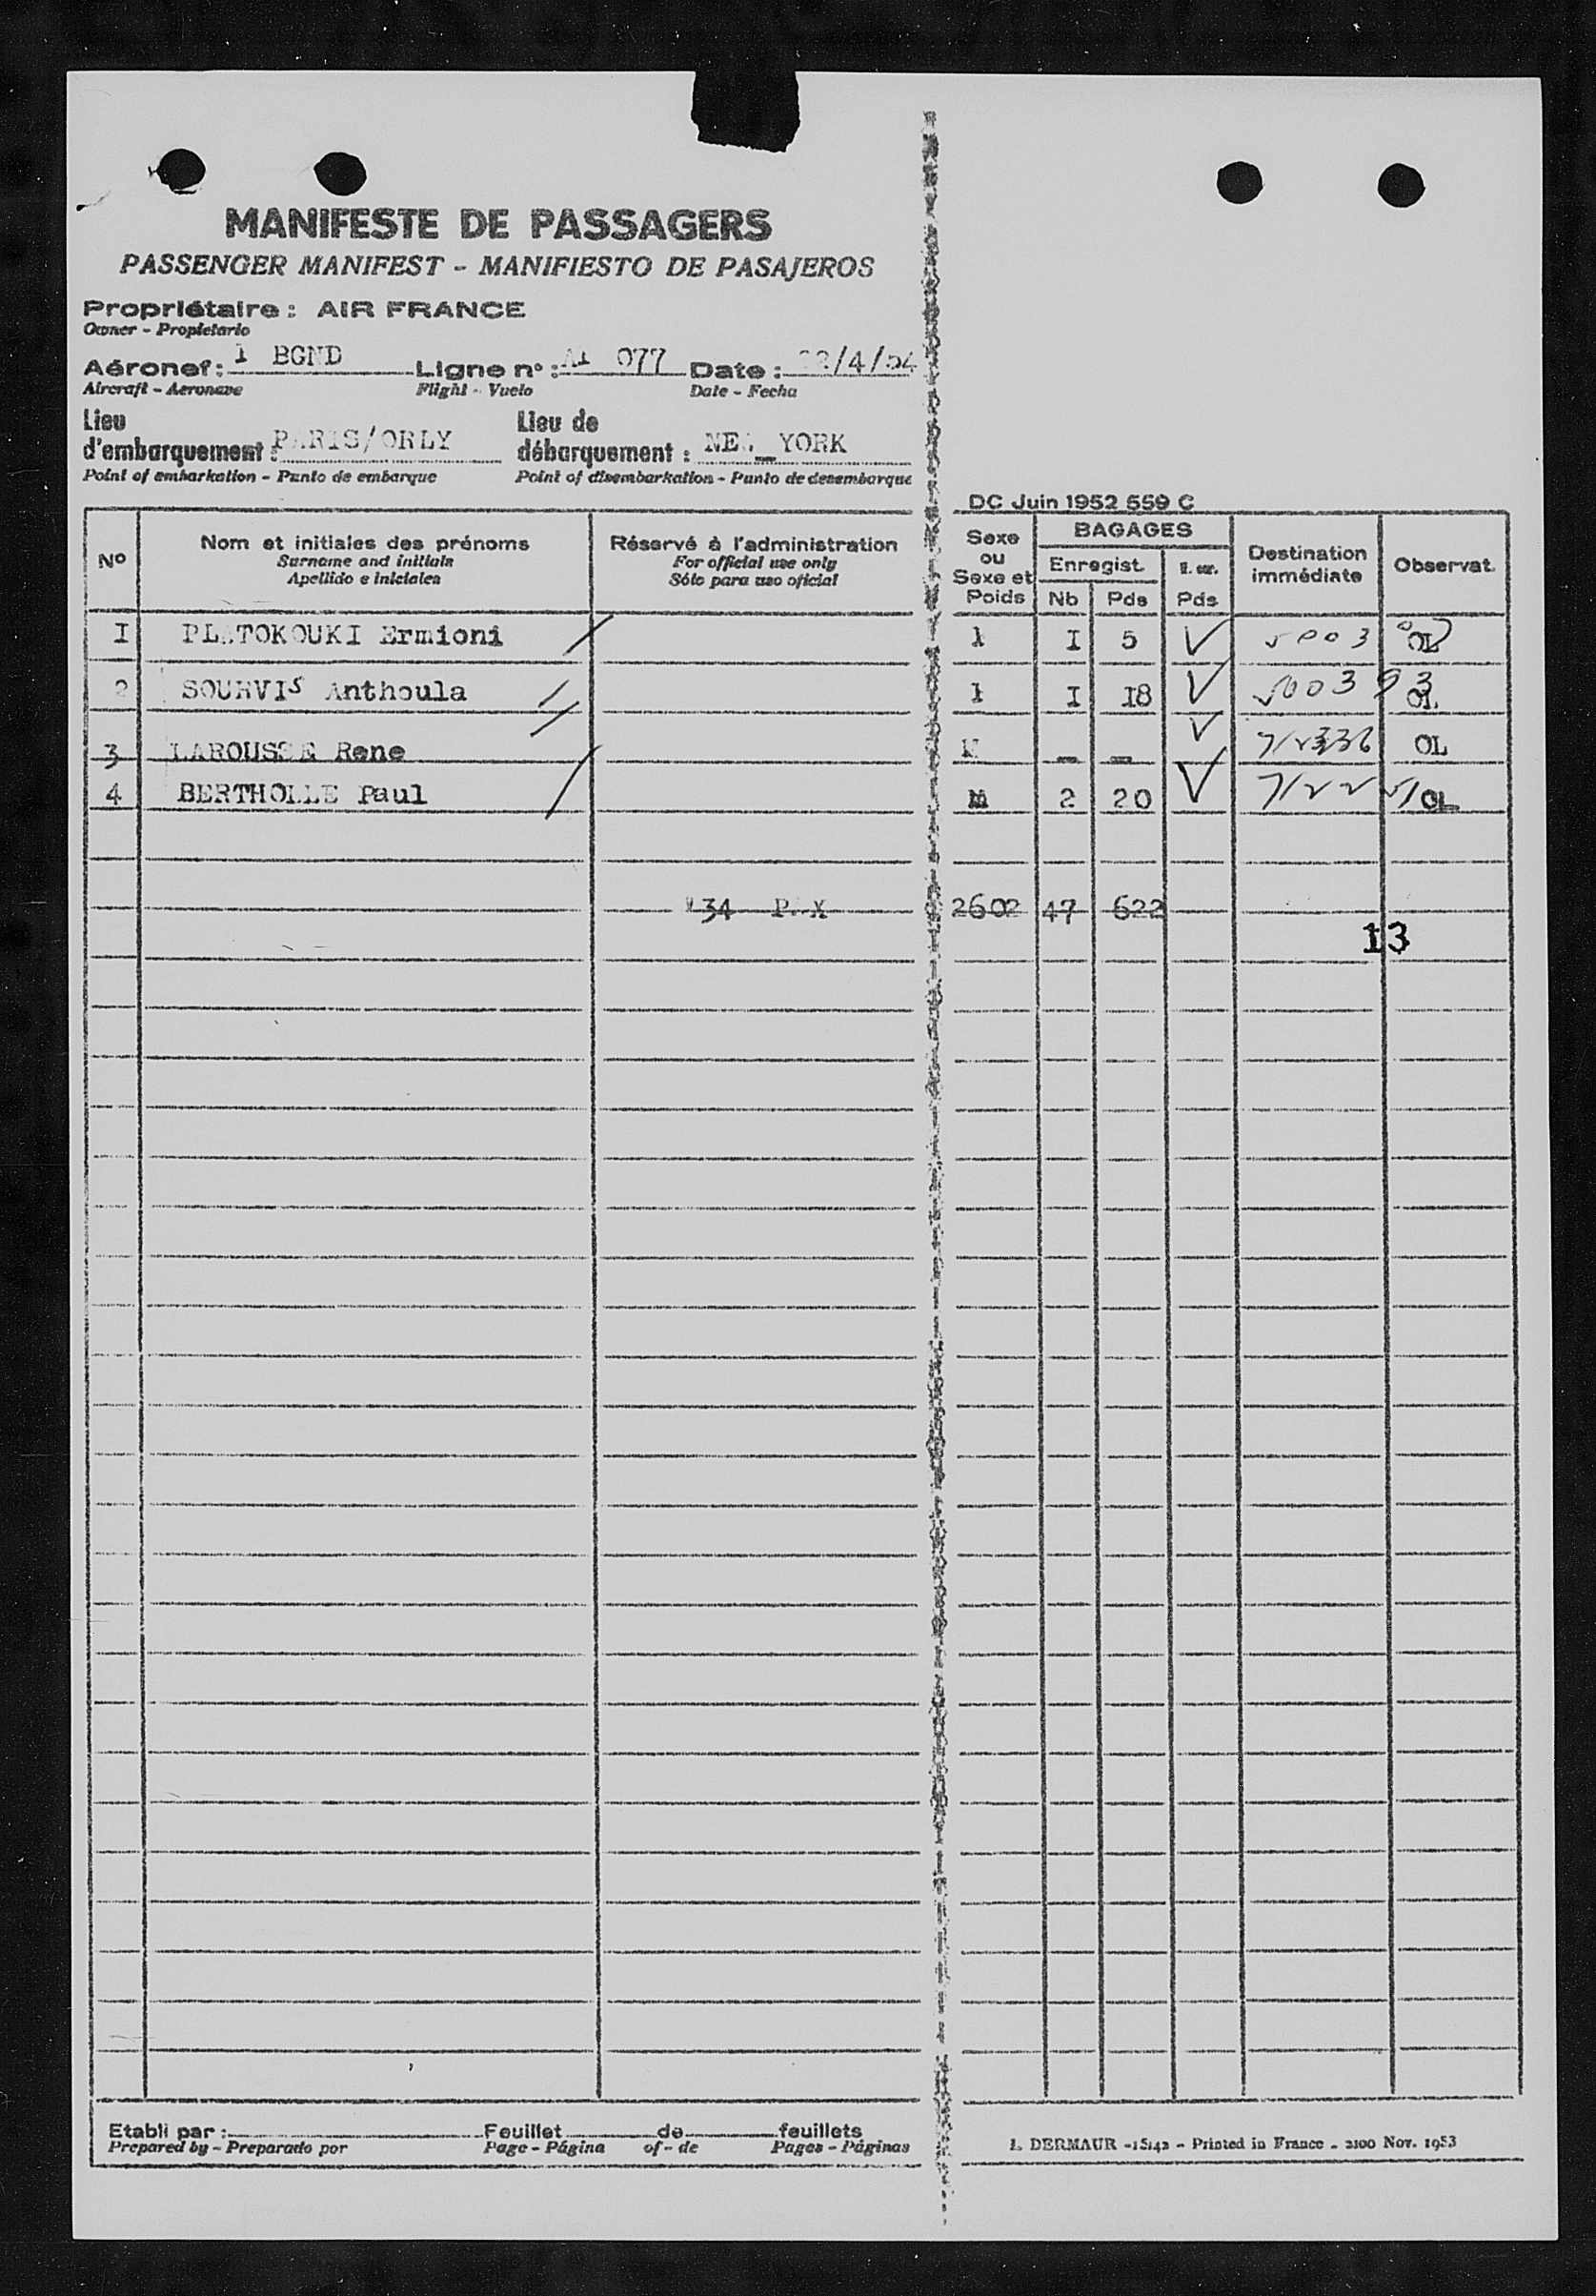 MANIFESTE DE PASSAGERS
PASSENGER MANIFEST - MANIFIESTO DE PASAJEROS
Propriétaire : AIR FRANCE
Owner - Propietario
Aéronef : BGND Ligne n° : 077 Date : /4/54
Aircraft - Aeronave Flight - Vuelo Date - Fecha
Lieu d'embarquement : PARIS/ORLY Lieu de débarquement : NEW YORK
Point of embarkation - Punto de embarque Point of disembarkation - Punto de desembarque
DC Juin 1952 559 C
N° Nom et initiales des prénoms Réservé à l'administration Sexe ou Sexe et Poids BAGAGES Enregist. Nb Pds Pds Destination immédiate Observat.
Surname and initials For official use only
Apellido e iniciales Sólo para uso oficial
I PLATOKOUKI Ermioni 1 I 5 OL
2 SOURVIS Anthoula 1 I 18 OL
3 LAROUSSE Rene M - - OL
4 BERTHOLLE Paul M 2 20 OL
34 PAX 2602 47 622
13
Etabli par : Feuillet de feuillets
Prepared by - Preparado por Page - Página of - de Pages - Páginas
L. DERMAUR - 15142 - Printed in France - 2100 Nov. 1953